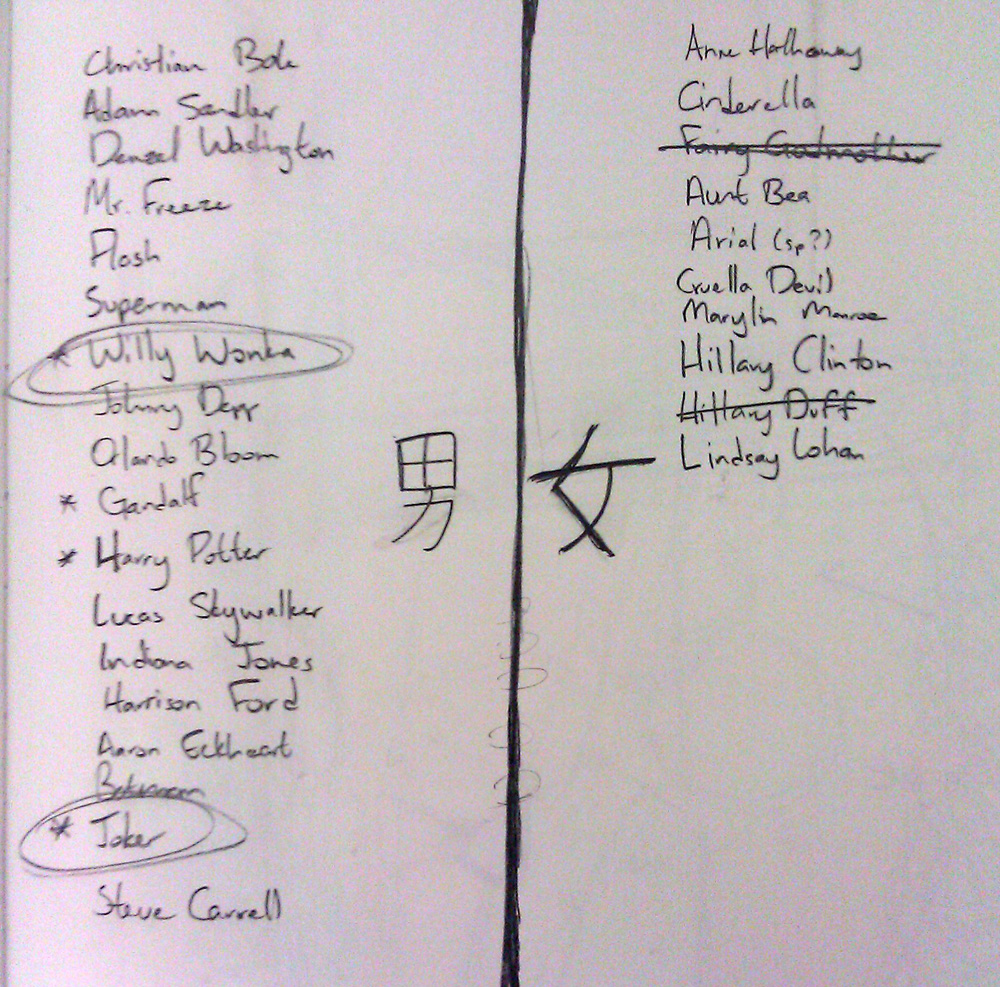 Christian Bale
Adam Sandler
Denzel Washington
Mr. Freeze
Flash
Superman
* Willy Wonka
Johnny Depp
Orlando Bloom
* Gandalf
* Harry Potter
Lucas Skywalker
Indiana Jones
Harrison Ford
Aaron Eckheart
Batman
* Joker
Steve Carrell
男
女
Anne Hathaway
Cinderella
Fairy Godmother
Aunt Bea
Arial (sp?)
Cruella Devil
Marylin Monroe
Hillary Clinton
Hillary Duff
Lindsay Lohan